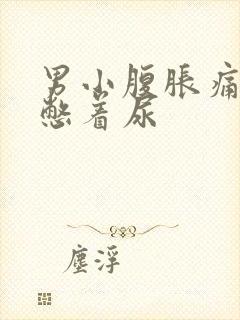 男小腹脹痛
憋着尿
塵浮